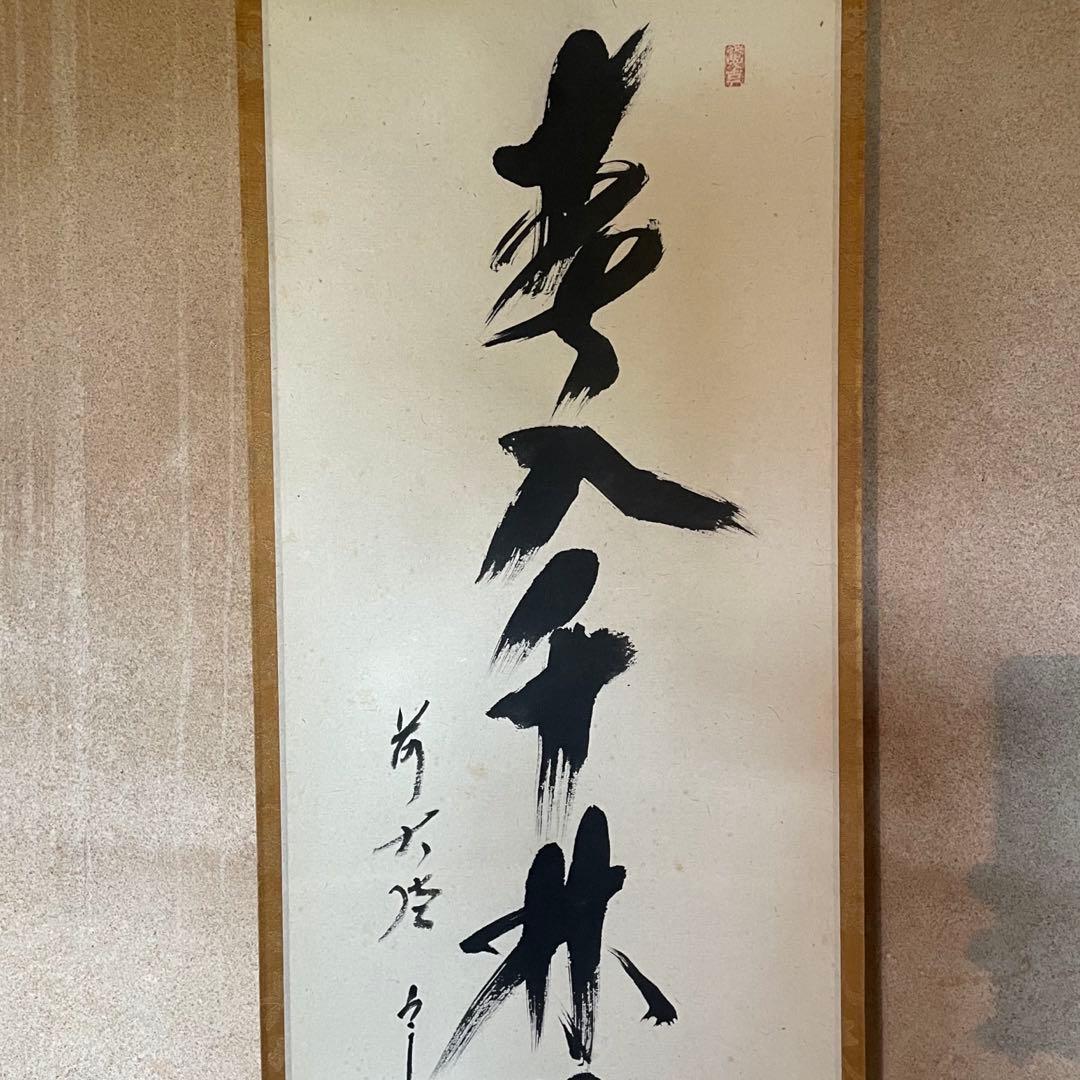 春入千林
前大徳